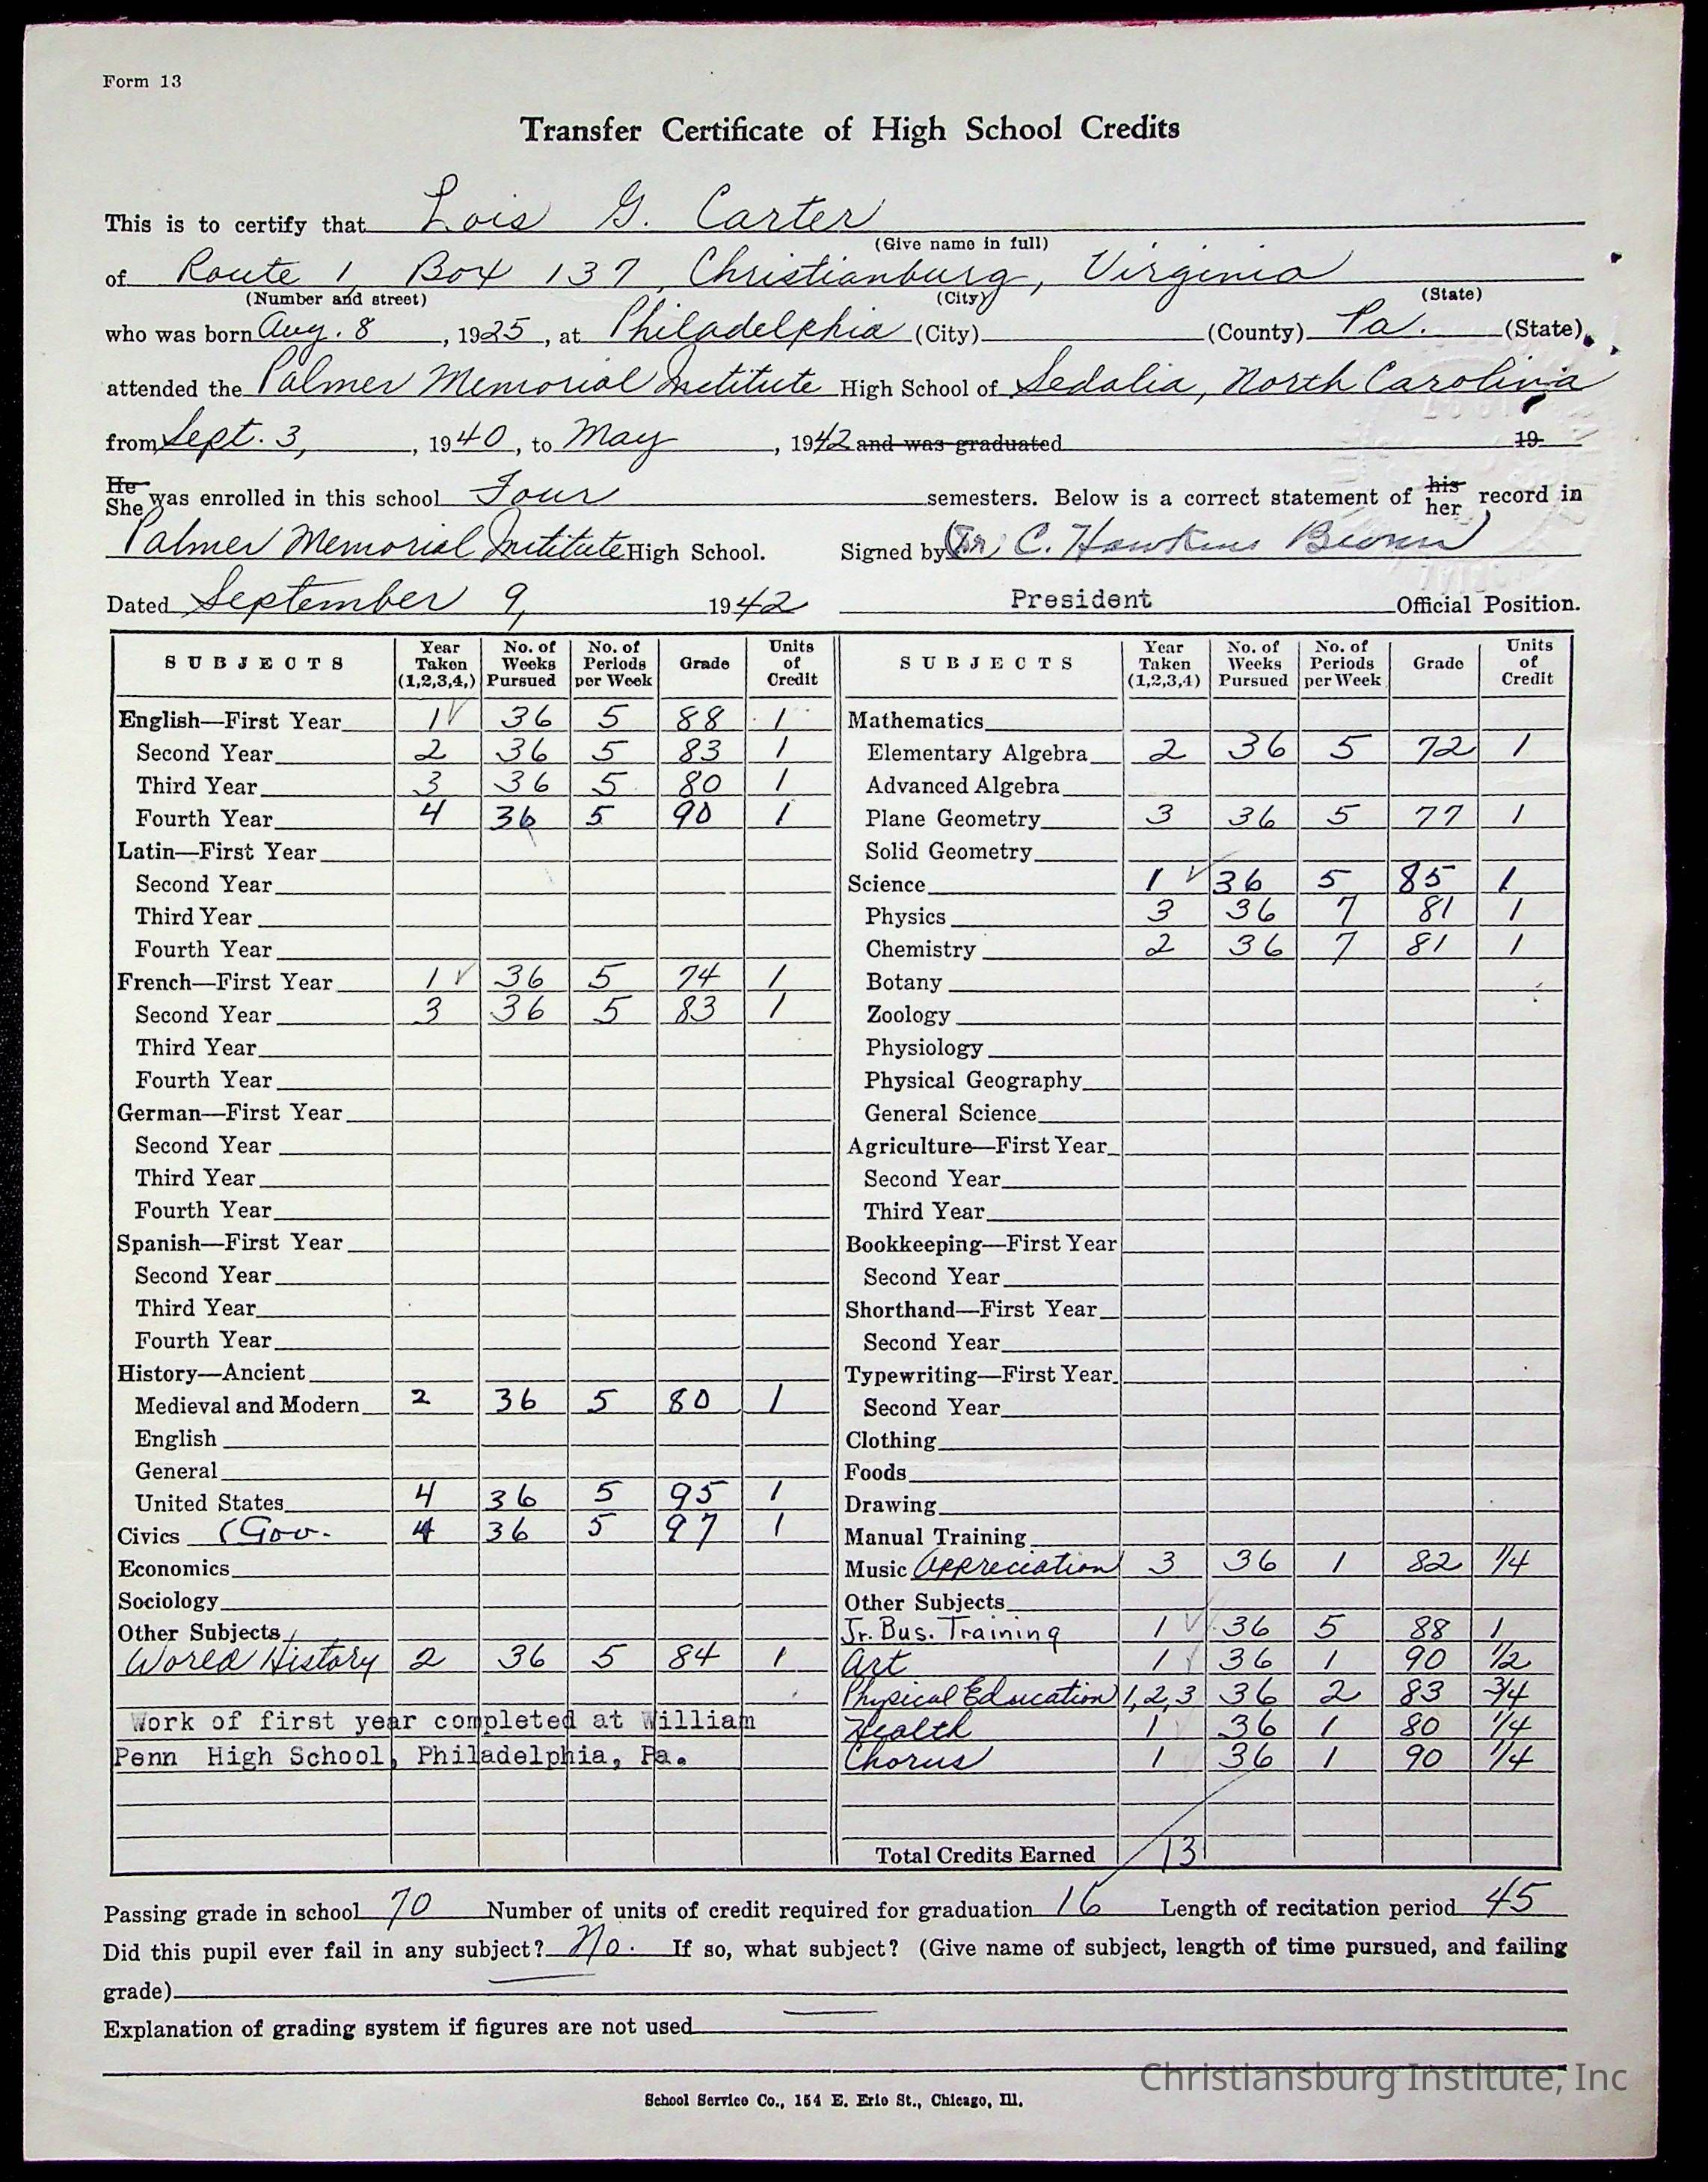 Form 13
Transfer Certificate of High School Credits
This is to certify that Lois G. Carter
(Give name in full)
of Route 1, Box 137, Christianburg, Virginia
(Number and street) (City) (State)
who was born Aug. 8, 1925, at Philadelphia (City) (County) Pa. (State),
attended the Palmer Memorial Institute High School of Sedalia, North Carolina
from Sept. 3, , 1940, to May , 1942 and was graduated 19
He
She was enrolled in this school Four semesters. Below is a correct statement of his her record in
Palmer Memorial Institute High School. Signed by (Dr) C. Hawkins Brown
Dated September 9, 1942 President Official Position.
SUBJECTS Year Taken (1,2,3,4,) No. of Weeks Pursued No. of Periods per Week Grade Units of Credit
English—First Year 1 ✓ 36 5 88 1
Second Year 2 36 5 83 1
Third Year 3 36 5 80 1
Fourth Year 4 36 5 90 1
Latin—First Year
Second Year
Third Year
Fourth Year
French—First Year 1 ✓ 36 5 74 1
Second Year 3 36 5 83 1
Third Year
Fourth Year
German—First Year
Second Year
Third Year
Fourth Year
Spanish—First Year
Second Year
Third Year
Fourth Year
History—Ancient
Medieval and Modern 2 36 5 80 1
English
General
United States 4 36 5 95 1
Civics (Gov. 4 36 5 97 1
Economics
Sociology
Other Subjects
World History 2 36 5 84 1
Work of first year completed at William
Penn High School, Philadelphia, Pa.
SUBJECTS Year Taken (1,2,3,4) No. of Weeks Pursued No. of Periods per Week Grade Units of Credit
Mathematics
Elementary Algebra 2 36 5 72 1
Advanced Algebra
Plane Geometry 3 36 5 77 1
Solid Geometry
Science 1 ✓ 36 5 85 1
Physics 3 36 7 81 1
Chemistry 2 36 7 81 1
Botany
Zoology
Physiology
Physical Geography
General Science
Agriculture—First Year
Second Year
Third Year
Bookkeeping—First Year
Second Year
Shorthand—First Year
Second Year
Typewriting—First Year
Second Year
Clothing
Foods
Drawing
Manual Training
Music Appreciation 3 36 1 82 1/4
Other Subjects
Jr. Bus. Training 1 ✓ 36 5 88 1
Art 1 ✓ 36 1 90 1/2
Physical Education 1, 2, 3 36 2 83 3/4
Health 1 36 1 80 1/4
Chorus 1 36 1 90 1/4
Total Credits Earned 13
Passing grade in school 70 Number of units of credit required for graduation 16 Length of recitation period 45
Did this pupil ever fail in any subject? No. If so, what subject? (Give name of subject, length of time pursued, and failing
grade)
Explanation of grading system if figures are not used
Christiansburg Institute, Inc
School Service Co., 154 E. Erie St., Chicago, Ill.